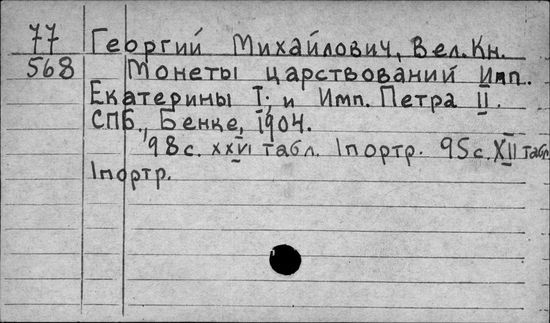 77 Георгий Михайлович, Вел. Кн.
568 Монеты царствований Имп.
Екатерины I; и Имп. Петра II.
СПБ., Бенке, 1904.
98 с. XXVI табл. 1 портр. 95 с. XII табл.
1 портр.